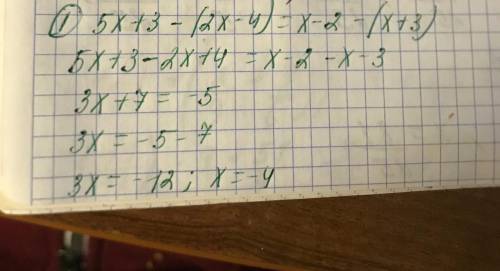 ① 5x+3-(2x-4)=x-2-(x+3)
5x+3-2x+4=x-2-x-3
3x+7=-5
3x=-5-7
3x=-12; x=-4